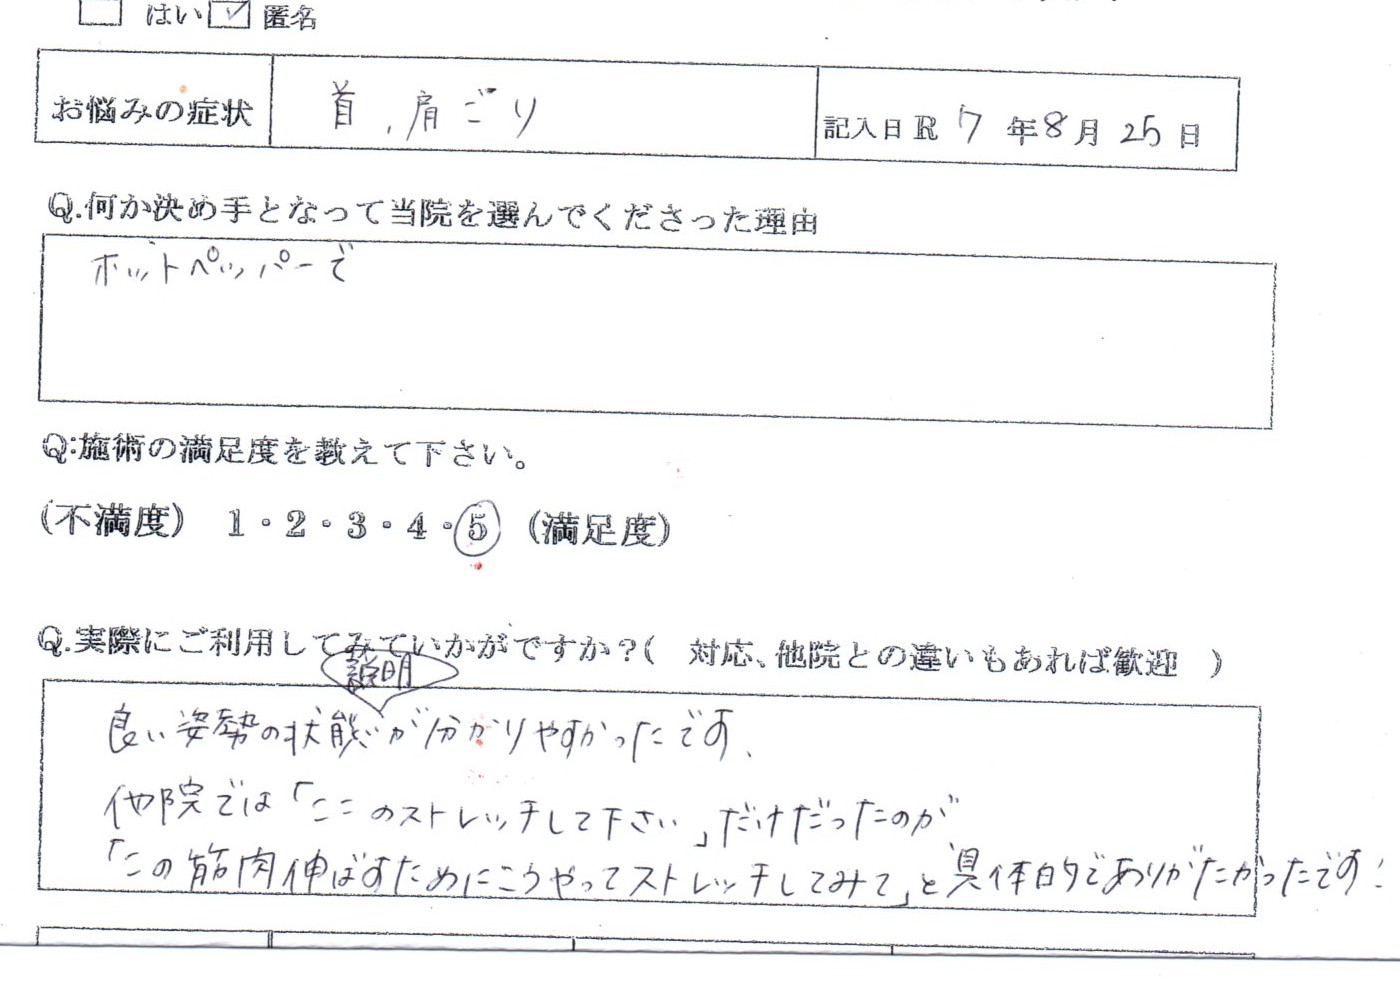 □ はい ☑ 匿名
お悩みの症状 首、肩こ゛り 記入日R 7 年 8 月 25 日
Q.何か決め手となって当院を選んでくださった理由
ホットペッパーで
Q:施術の満足度を教えて下さい。
(不満度) 1・2・3・4・5 (満足度)
Q.実際にご利用してみていかがですか?( 対応、他院との違いもあれば歓迎 )
説明
良い姿勢の状態が分かりやすかったです、
他院では「ここのストレッチして下さい」だけだったのが
「この筋肉伸ばすためにこうやってストレッチしてみて」と具体的でありがたかったです!